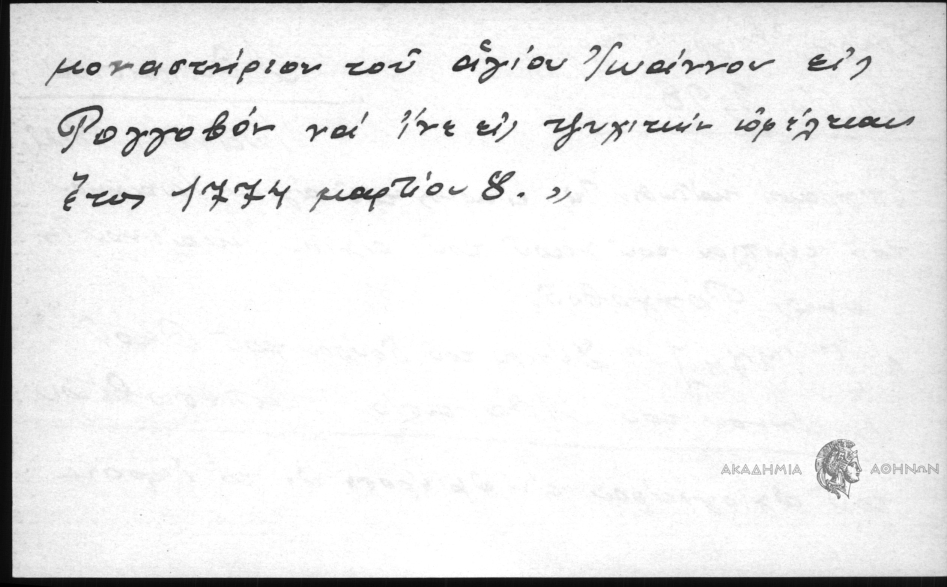 μοναστηίριον τοῦ ἁγίου Ἰωάννου εἰς
Ρογγοβόν ναί ἵνε εἰς τζυχικήν ὀφέλειαν
ἔτος 1774 μαρτίου 8. »
ΑΚΑΔΗΜΙΑ ΑΘΗΝΩΝ